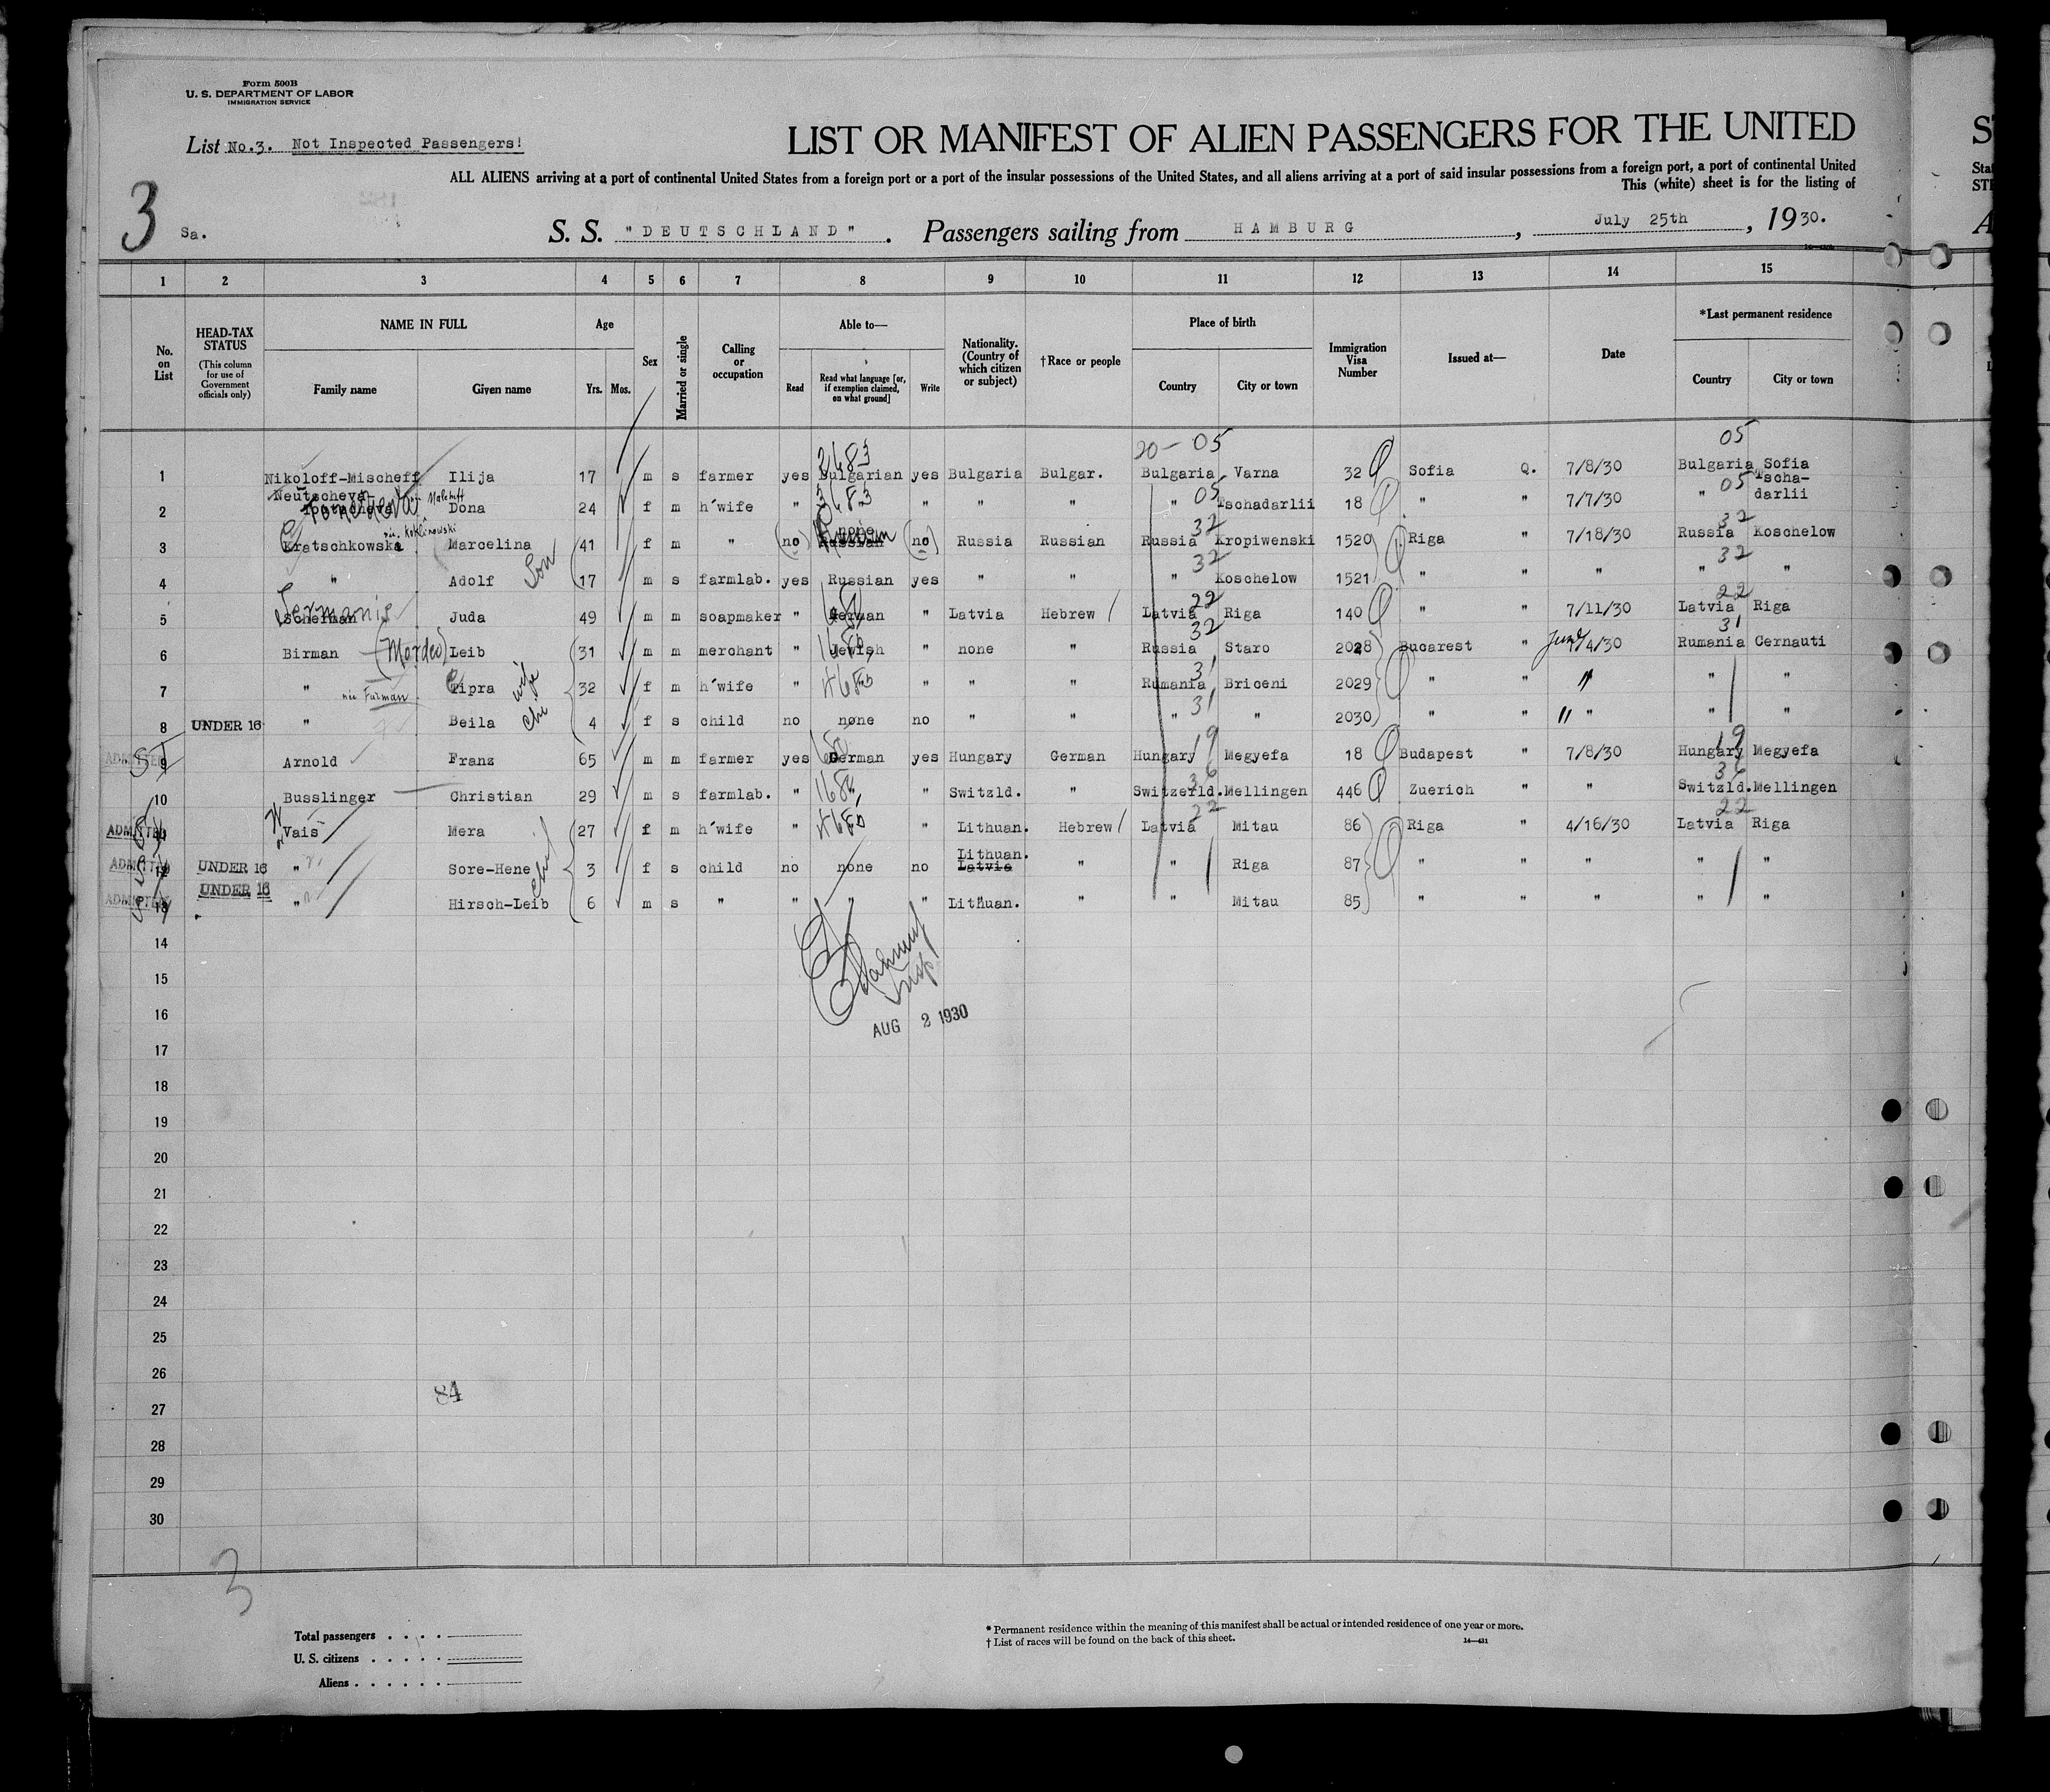 Form 500B
U. S. DEPARTMENT OF LABOR
IMMIGRATION SERVICE
List No.3. Not Inspected Passengers!
LIST OR MANIFEST OF ALIEN PASSENGERS FOR THE UNITED
ALL ALIENS arriving at a port of continental United States from a foreign port or a port of the insular possessions of the United States, and all aliens arriving at a port of said insular possessions from a foreign port, a port of continental United
This (white) sheet is for the listing of
3 Sa. S. S. "DEUTSCHLAND". Passengers sailing from HAMBURG, July 25th, 1930.
1 2 3 4 5 6 7 8 9 10 11 12 13 14 15
No. on List
HEAD-TAX STATUS (This column for use of Government officials only)
NAME IN FULL Family name Given name
Age Yrs. Mos.
Sex
Married or single
Calling or occupation
Able to— Read Read what language [or, if exemption claimed, on what ground] Write
Nationality. (Country of which citizen or subject)
†Race or people
Place of birth Country City or town
Immigration Visa Number
Issued at—
Date
*Last permanent residence Country City or town
20- 05 05
1 Nikoloff-Mischeff Ilija 17 m s farmer yes Bulgarian yes Bulgaria Bulgar. Bulgaria Varna 32 Sofia Q. 7/8/30 Bulgaria Sofia
2 Neutscheva Dona 24 f m h'wife " " " " " " 05 Tschadarlii 18 " " 7/7/30 " 05 Tscha-darlii
3 Kratschkowska Marcelina 41 f m " (no) none (no) Russia Russian Russia 32 Kropiwenski 1520 Riga " 7/18/30 Russia 32 Koschelow
4 " Adolf Son 17 m s farmlab. yes Russian yes " " " 32 Koschelow 1521 " " " " 32 "
5 Scherman Juda 49 m m soapmaker " German " Latvia Hebrew Latvia 22 Riga 140 " " 7/11/30 Latvia 22 Riga
6 Birman (Mordco) Leib 31 m m merchant " Jewish " none " Russia 32 Staro 2028 Bucarest " June/4/30 Rumania 31 Cernauti
7 " née Furman Cipra wife 32 f m h'wife " " " " " Rumania 31 Briceni 2029 " " " " "
8 UNDER 16 " Beila Chi 4 f s child no none no " " " 31 " 2030 " " " " "
ADMITTED 9 Arnold Franz 65 m m farmer yes German yes Hungary German Hungary 19 Megyefa 18 Budapest " 7/8/30 Hungary 19 Megyefa
10 Busslinger Christian 29 m s farmlab. " " " Switzld. " Switzerld. 36 Mellingen 446 Zuerich " " Switzld. 36 Mellingen
ADMITTED 11 Vais Mera 27 f m h'wife " " " Lithuan. Hebrew Latvia 22 Mitau 86 Riga " 4/16/30 Latvia 22 Riga
ADMITTED 12 UNDER 16 " Sore-Hene 3 f s child no none no Lithuan. Latvia " " Riga 87 " " " " "
ADMITTED 13 UNDER 16 " Hirsch-Leib 6 m s " " " " Lithuan. " " Mitau 85 " " " " "
14
15
16
AUG 2 1930
17
18
19
20
21
22
23
24
25
26
84
27
28
29
30
3
Total passengers
U. S. citizens
Aliens
* Permanent residence within the meaning of this manifest shall be actual or intended residence of one year or more.
† List of races will be found on the back of this sheet.
14—431